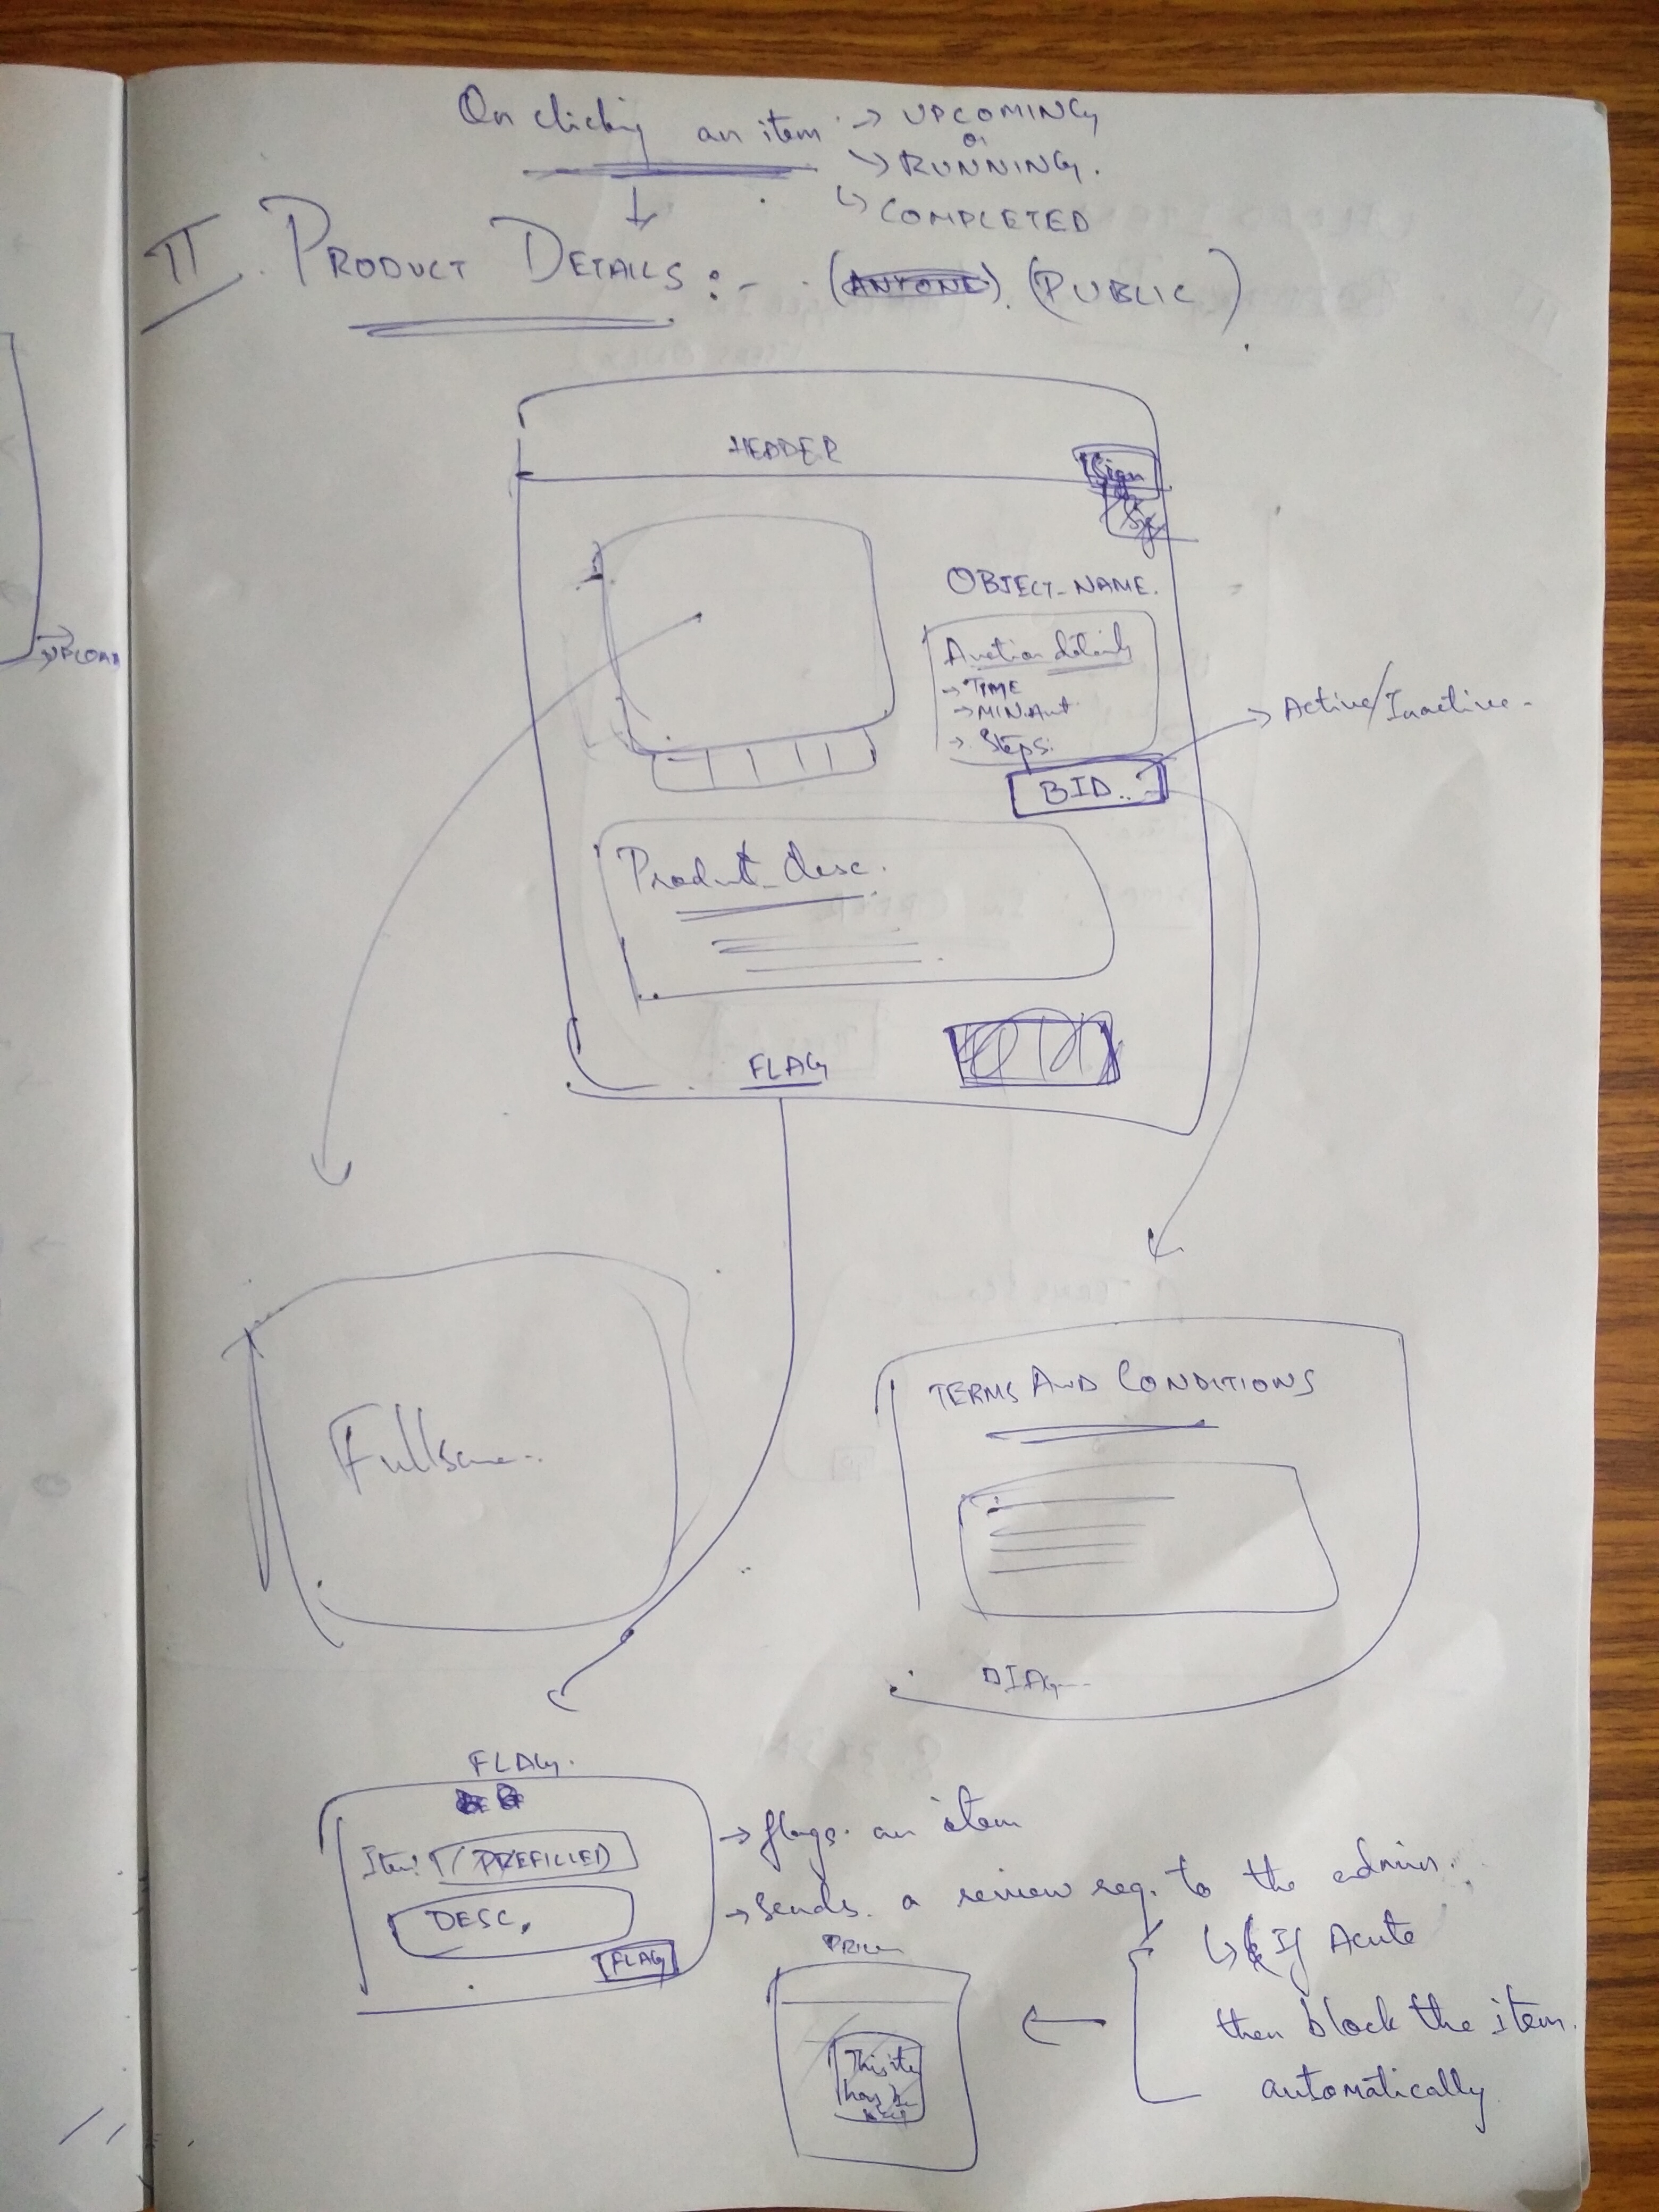 On clicking an item → UPCOMING
or
↘ RUNNING.
↳ COMPLETED
II. PRODUCT DETAILS :- (ANYONE). (PUBLIC)
HEADER
Sign
OBJECT_NAME.
Auction details
→ TIME
→ MIN. Amt
→ Steps.
BID..
→ Active/Inactive.
Product_desc.
FLAG
TERMS AND CONDITIONS
FLAG.
Item: PREFILLED
DESC.
FLAG
→ flags. an item
→ Sends. a review req. to the admin.
↳ If Acute
then block the item.
automatically
UPLOAD